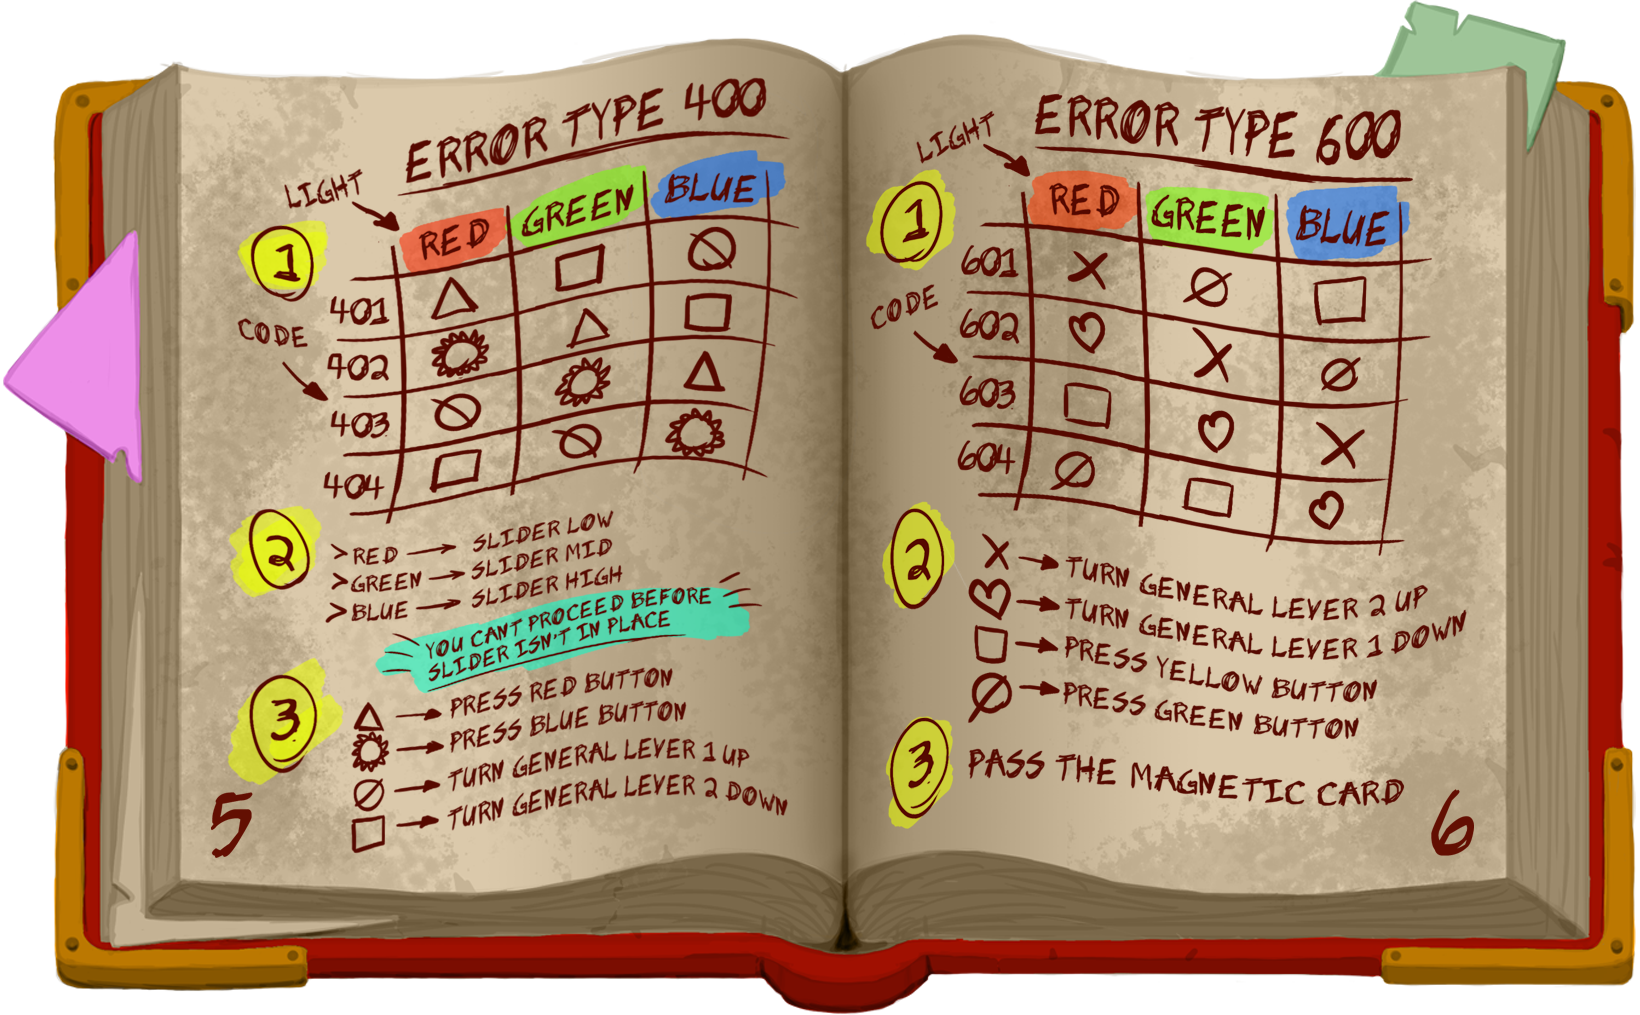 ERROR TYPE 400
LIGHT
RED GREEN BLUE
1
CODE
401
402
403
404
2
>RED SLIDER LOW
>GREEN SLIDER MID
>BLUE SLIDER HIGH
YOU CANT PROCEED BEFORE
SLIDER ISN'T IN PLACE
3
PRESS RED BUTTON
PRESS BLUE BUTTON
TURN GENERAL LEVER 1 UP
TURN GENERAL LEVER 2 DOWN
5
ERROR TYPE 600
LIGHT
RED GREEN BLUE
1
CODE
601
602
603
604
2
TURN GENERAL LEVER 2 UP
TURN GENERAL LEVER 1 DOWN
PRESS YELLOW BUTTON
PRESS GREEN BUTTON
3
PASS THE MAGNETIC CARD
6